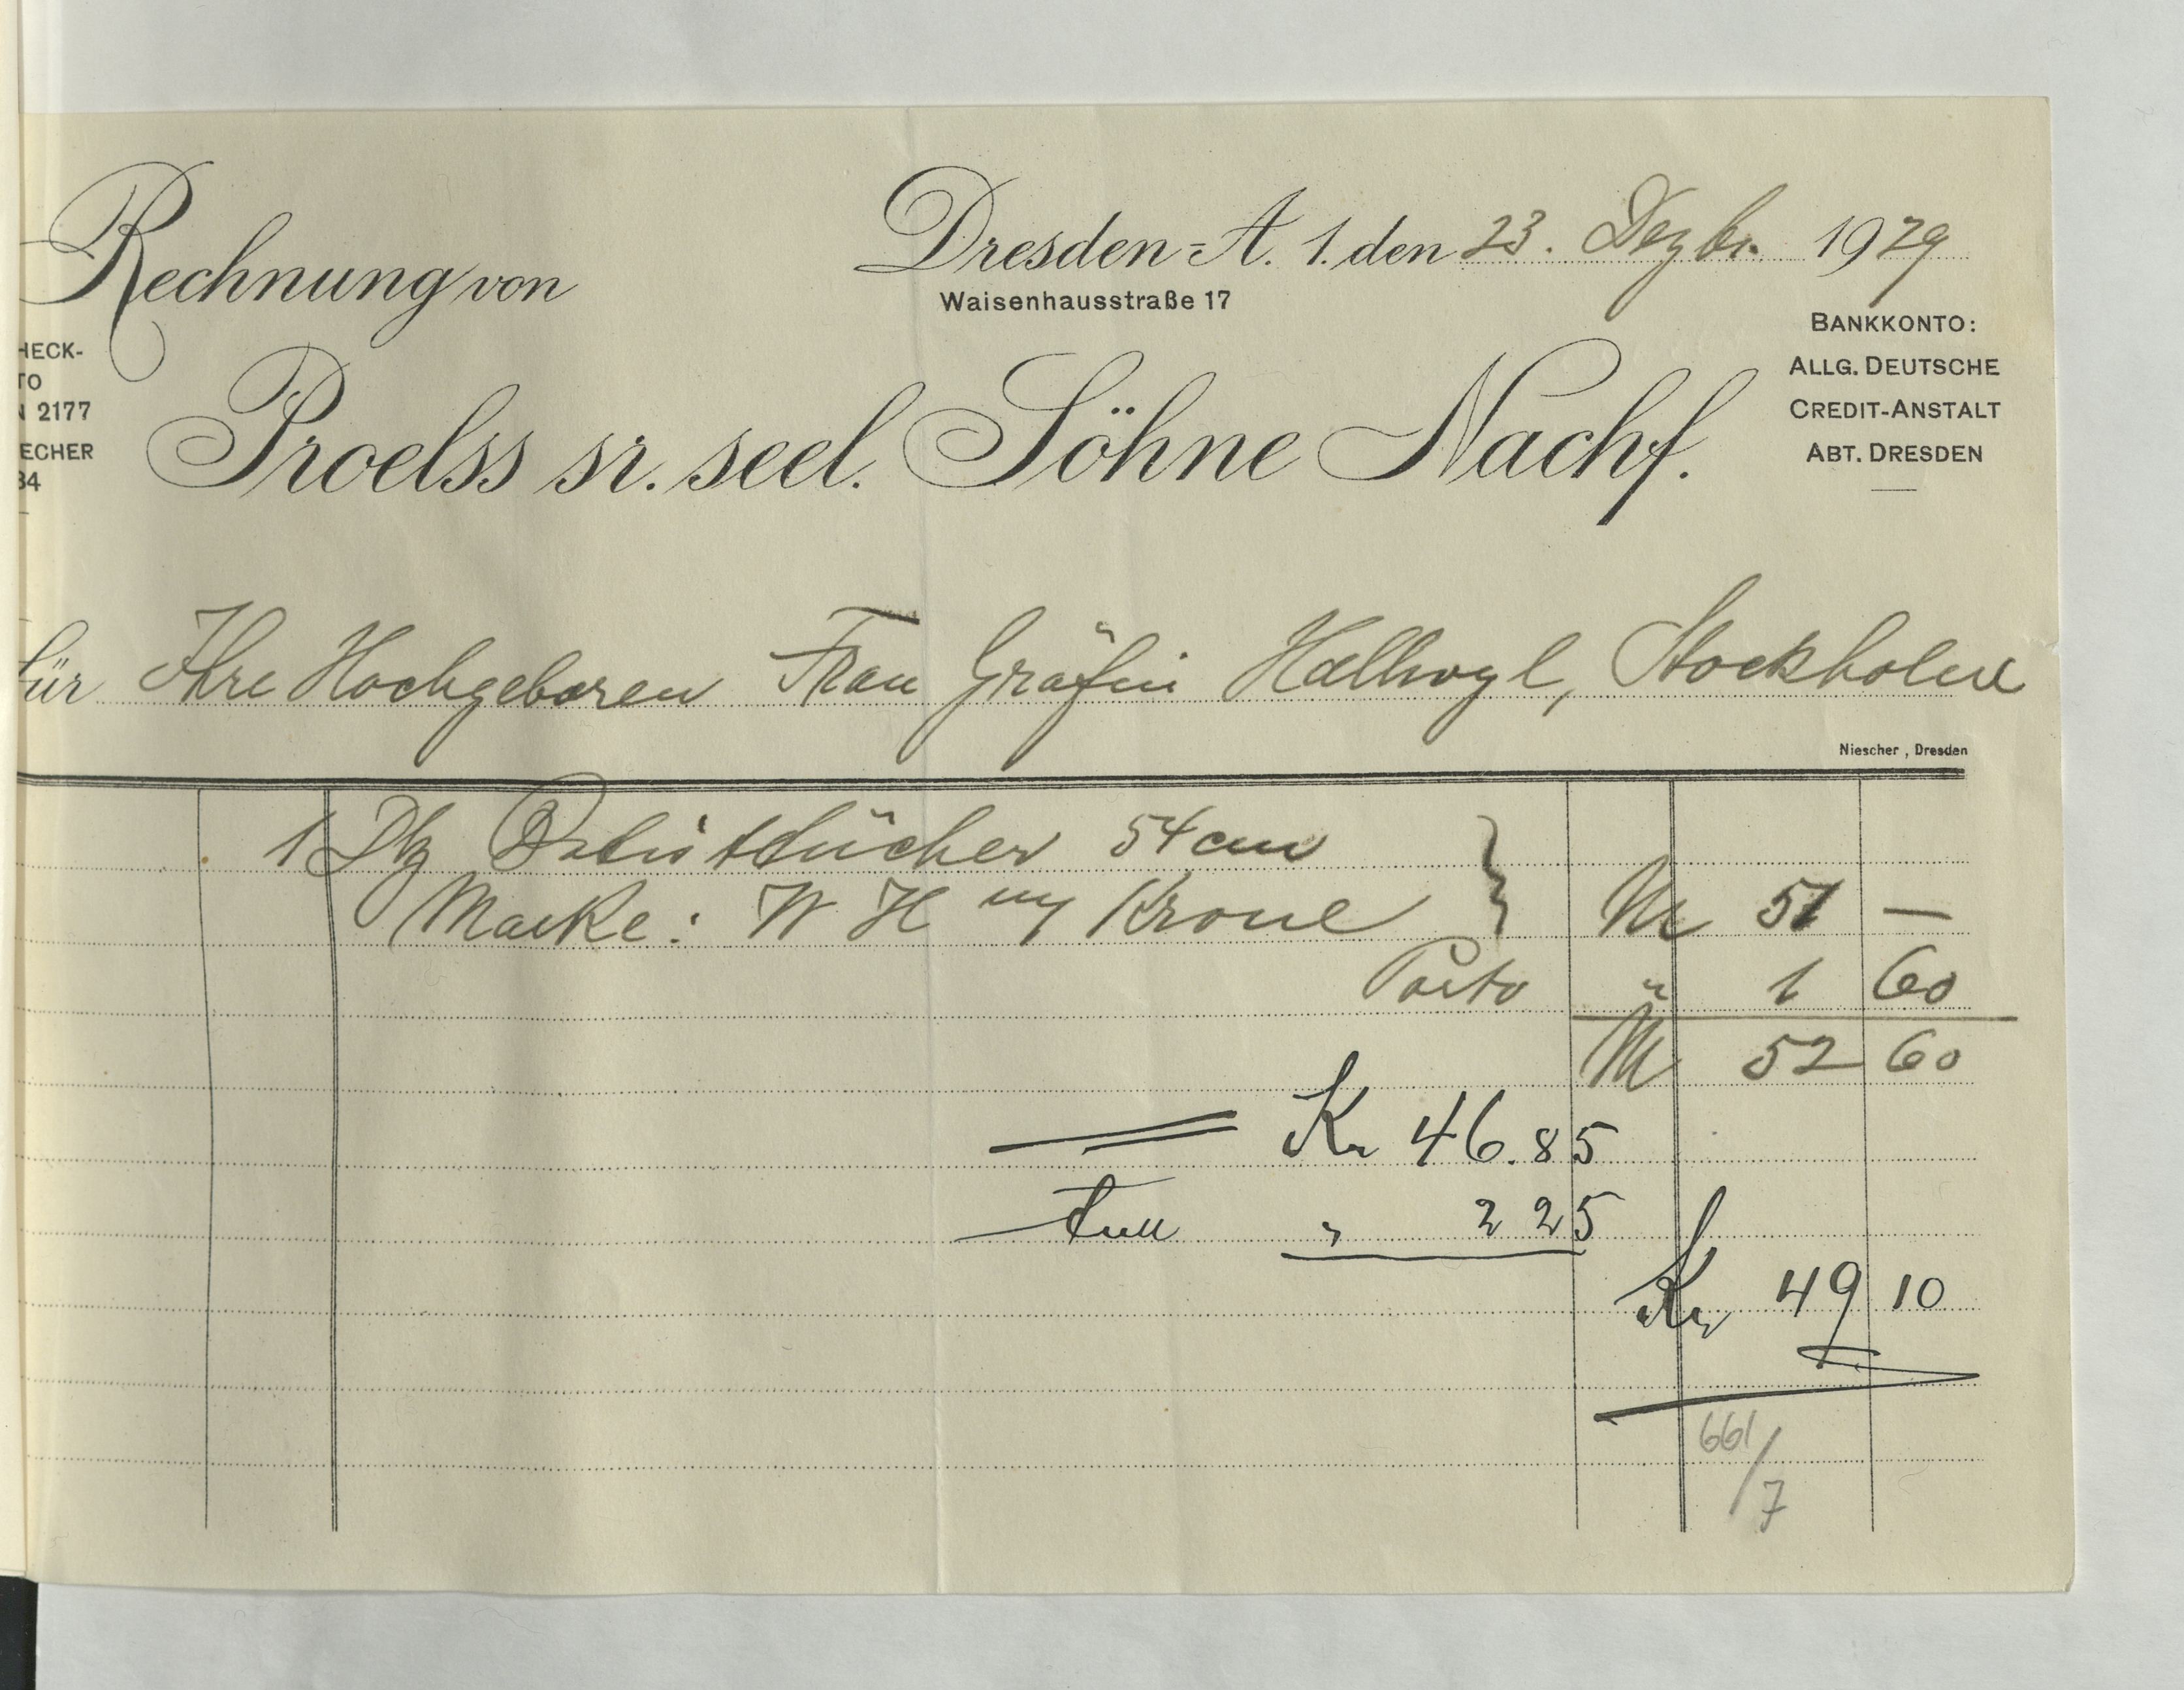 Rechnung von
Dresden-A. 1. den 23. Dezbr. 1929
Waisenhausstraße 17
HECK-
TO
N 2177
ECHER
34
Proelss sr. seel. Söhne Nachf.
BANKKONTO:
ALLG. DEUTSCHE
CREDIT-ANSTALT
ABT. DRESDEN
für Ihre Hochgeboren Frau Gräfin Hallwyl, Stockholm
Niescher, Dresden
1 Dtz Batisttücher 54 cm
Marke: W H m Krone } M 51 —
Porto " 1 60
M 52 60
= Kr 46.85
Tull " 2 25
Kr 49 10
661/7